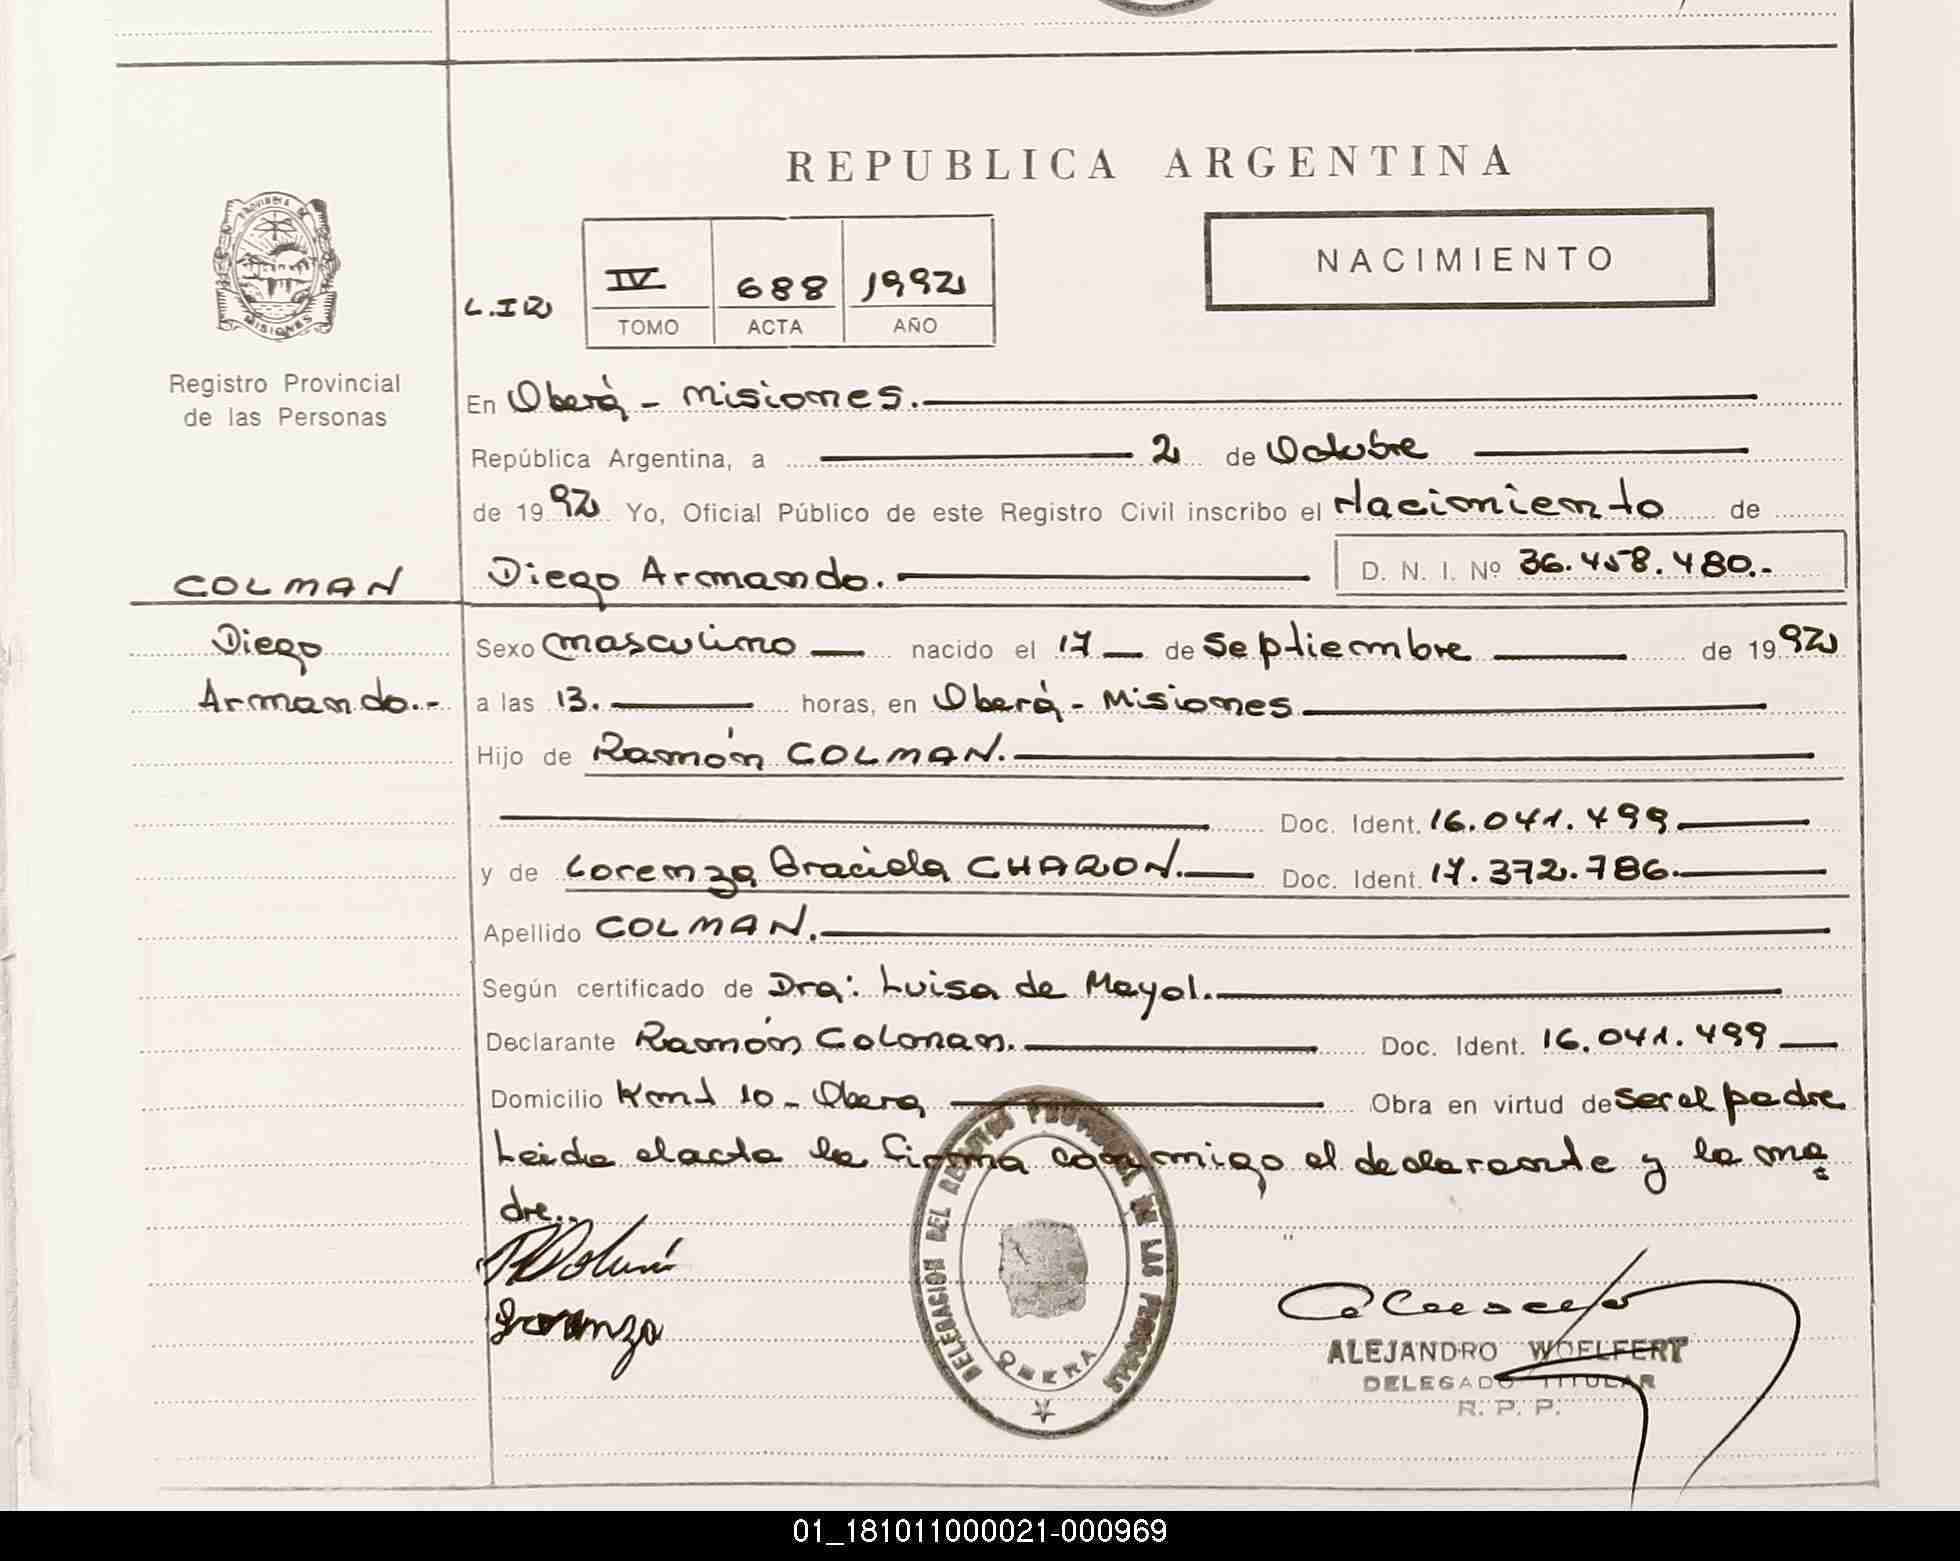 REPUBLICA ARGENTINA
PROVINCIA DE
MISIONES
Registro Provincial
de las Personas
NACIMIENTO
IV 688 1992
TOMO ACTA AÑO
En Oberá - Misiones.
República Argentina, a 2 de Octubre
de 1992 Yo, Oficial Público de este Registro Civil inscribo el Nacimiento de
Diego Armando. D. N. I. Nº 36.458.480.-
COLMAN
Diego
Armando.-
Sexo masculino nacido el 17 de Septiembre de 1992
a las 13. horas, en Oberá - Misiones
Hijo de Ramón COLMAN.
Doc. Ident. 16.041.499
y de Lorenza Graciela CHARON. Doc. Ident. 17.372.786.
Apellido COLMAN.
Según certificado de Dra: Luisa de Mayol.
Declarante Ramón Colman. Doc. Ident. 16.041.499
Domicilio Kmt 10 - Obera Obra en virtud de ser el padre
Leida el acta la firma conmigo el declarante y la ma
dre..
Lorenza
DELEGACION DEL REGISTRO PROVINCIAL DE LAS PERSONAS
OBERA
ALEJANDRO WOELFERT
DELEGADO TITULAR
R. P. P.
01_181011000021-000969